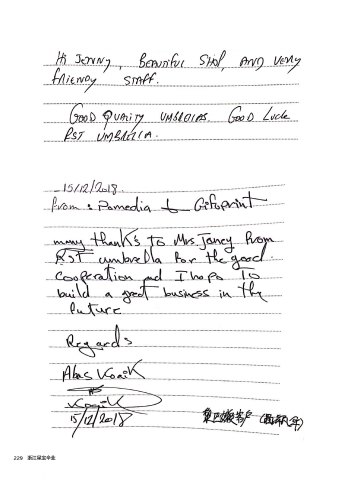 Hi Jenny, Beautiful Shop, and very
friendy staff.
Good Quality umbrellas. Good Luck
RST umbrella.
15/12/2018.
From: Pomedia & Gifoprint
many thanks to Mrs. Jancy From
RST umbrella For the good
cooperation and I hope To
build a great business in the
Future
Regards
15/12/2018
229 浙江瑞宝伞业